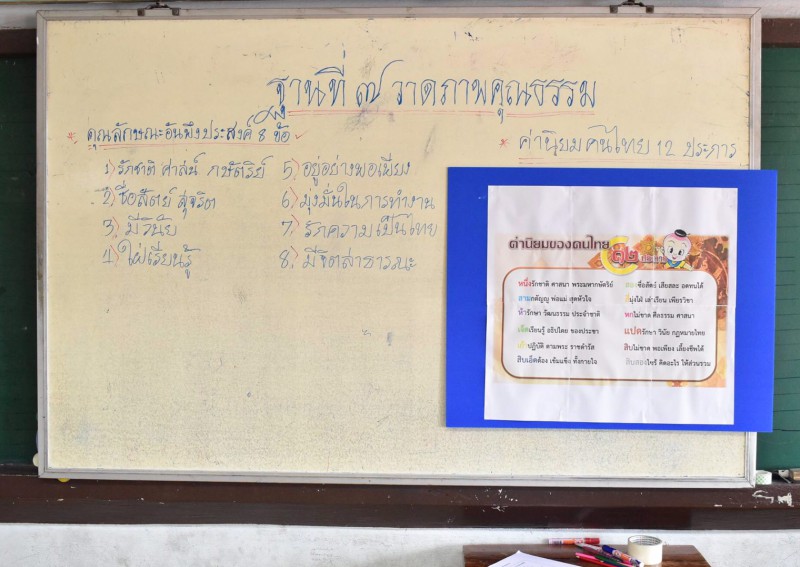 ฐานที่ ๗ วาดภาพคุณธรรม
* คุณลักษณะอันพึงประสงค์ 8 ข้อ
1) รักชาติ ศาสน์ กษัตริย์
2) ซื่อสัตย์ สุจริต
3) มีวินัย
4) ใฝ่เรียนรู้
5) อยู่อย่างพอเพียง
6) มุ่งมั่นในการทำงาน
7) รักความเป็นไทย
8) มีจิตสาธารณะ
* ค่านิยมคนไทย 12 ประการ
ค่านิยมของคนไทย
๑๒ ประการ
หนึ่งรักชาติ ศาสนา พระมหากษัตริย์
สองซื่อสัตย์ เสียสละ อดทนได้
สามกตัญญู พ่อแม่ สุดหัวใจ
สี่มุ่งใฝ่ เล่าเรียน เพียรวิชา
ห้ารักษา วัฒนธรรม ประจำชาติ
หกไม่ขาด ศีลธรรม ศาสนา
เจ็ดเรียนรู้ อธิปไตย ของประชา
แปดรักษา วินัย กฎหมายไทย
เก้าปฏิบัติ ตามพระ ราชดำรัส
สิบไม่ขาด พอเพียง เลี้ยงชีพได้
สิบเอ็ดต้อง เข้มแข็ง ทั้งกายใจ
สิบสองไซร้ คิดอะไร ให้ส่วนรวม